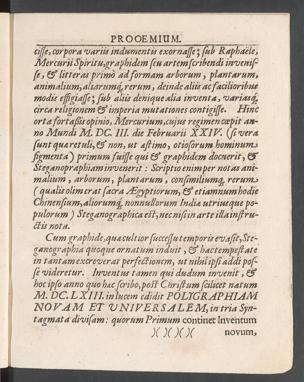 PROOEMIUM.
cisse, corpora variis indumentis exornasse; sub Raphaële,
Mercurii Spiritu, graphidem seu artem scribendi invenis-
se, & litteras primò ad formam arborum, plantarum,
animalium, aliarumq́, rerum, deinde aliis ac facilioribus
modis effigiasse; sub aliis denique alia inventa, variasq́,
circa religionem & imperia mutationes contigisse. Hinc
orta fortassis opinio, Mercurium, cujus regimen cœpit an-
no Mundi M. DC. III. die Februarii XXIV. (si vera
sunt quæ retuli, & non, ut æstimo, otiosorum hominum
figmenta) primum fuisse qui & graphidem docuerit, &
Steganographiam invenerit: Scriptio enim per notas ani-
malium, arborum, plantarum, consimiliumq́, rerum
(qualis olim erat sacra Ægyptiorum, & etiamnum hodie
Chinensium, aliorumq́, nonnullorum India utriusque po-
pulorum) Steganographica est; nec nisi in arte illa instru-
ctis nota.
Cum graphide, quæ cultior successu temporis evasit, Ste-
ganographia quoque ornatum induit, & hac tempestate
in tantam excreverat perfectionem, ut nihil ipsi addi pos-
se videretur. Inventus tamen qui dudum invenit, &
hoc ipso anno quo hæc scribo, post Christum scilicet natum
M. DC. LXIII. in lucem edidit POLYGRAPHIAM
NOVAM ET UNIVERSALEM, in tria Syn-
tagmata divisam: quorum Primum continet Inventum
novum,